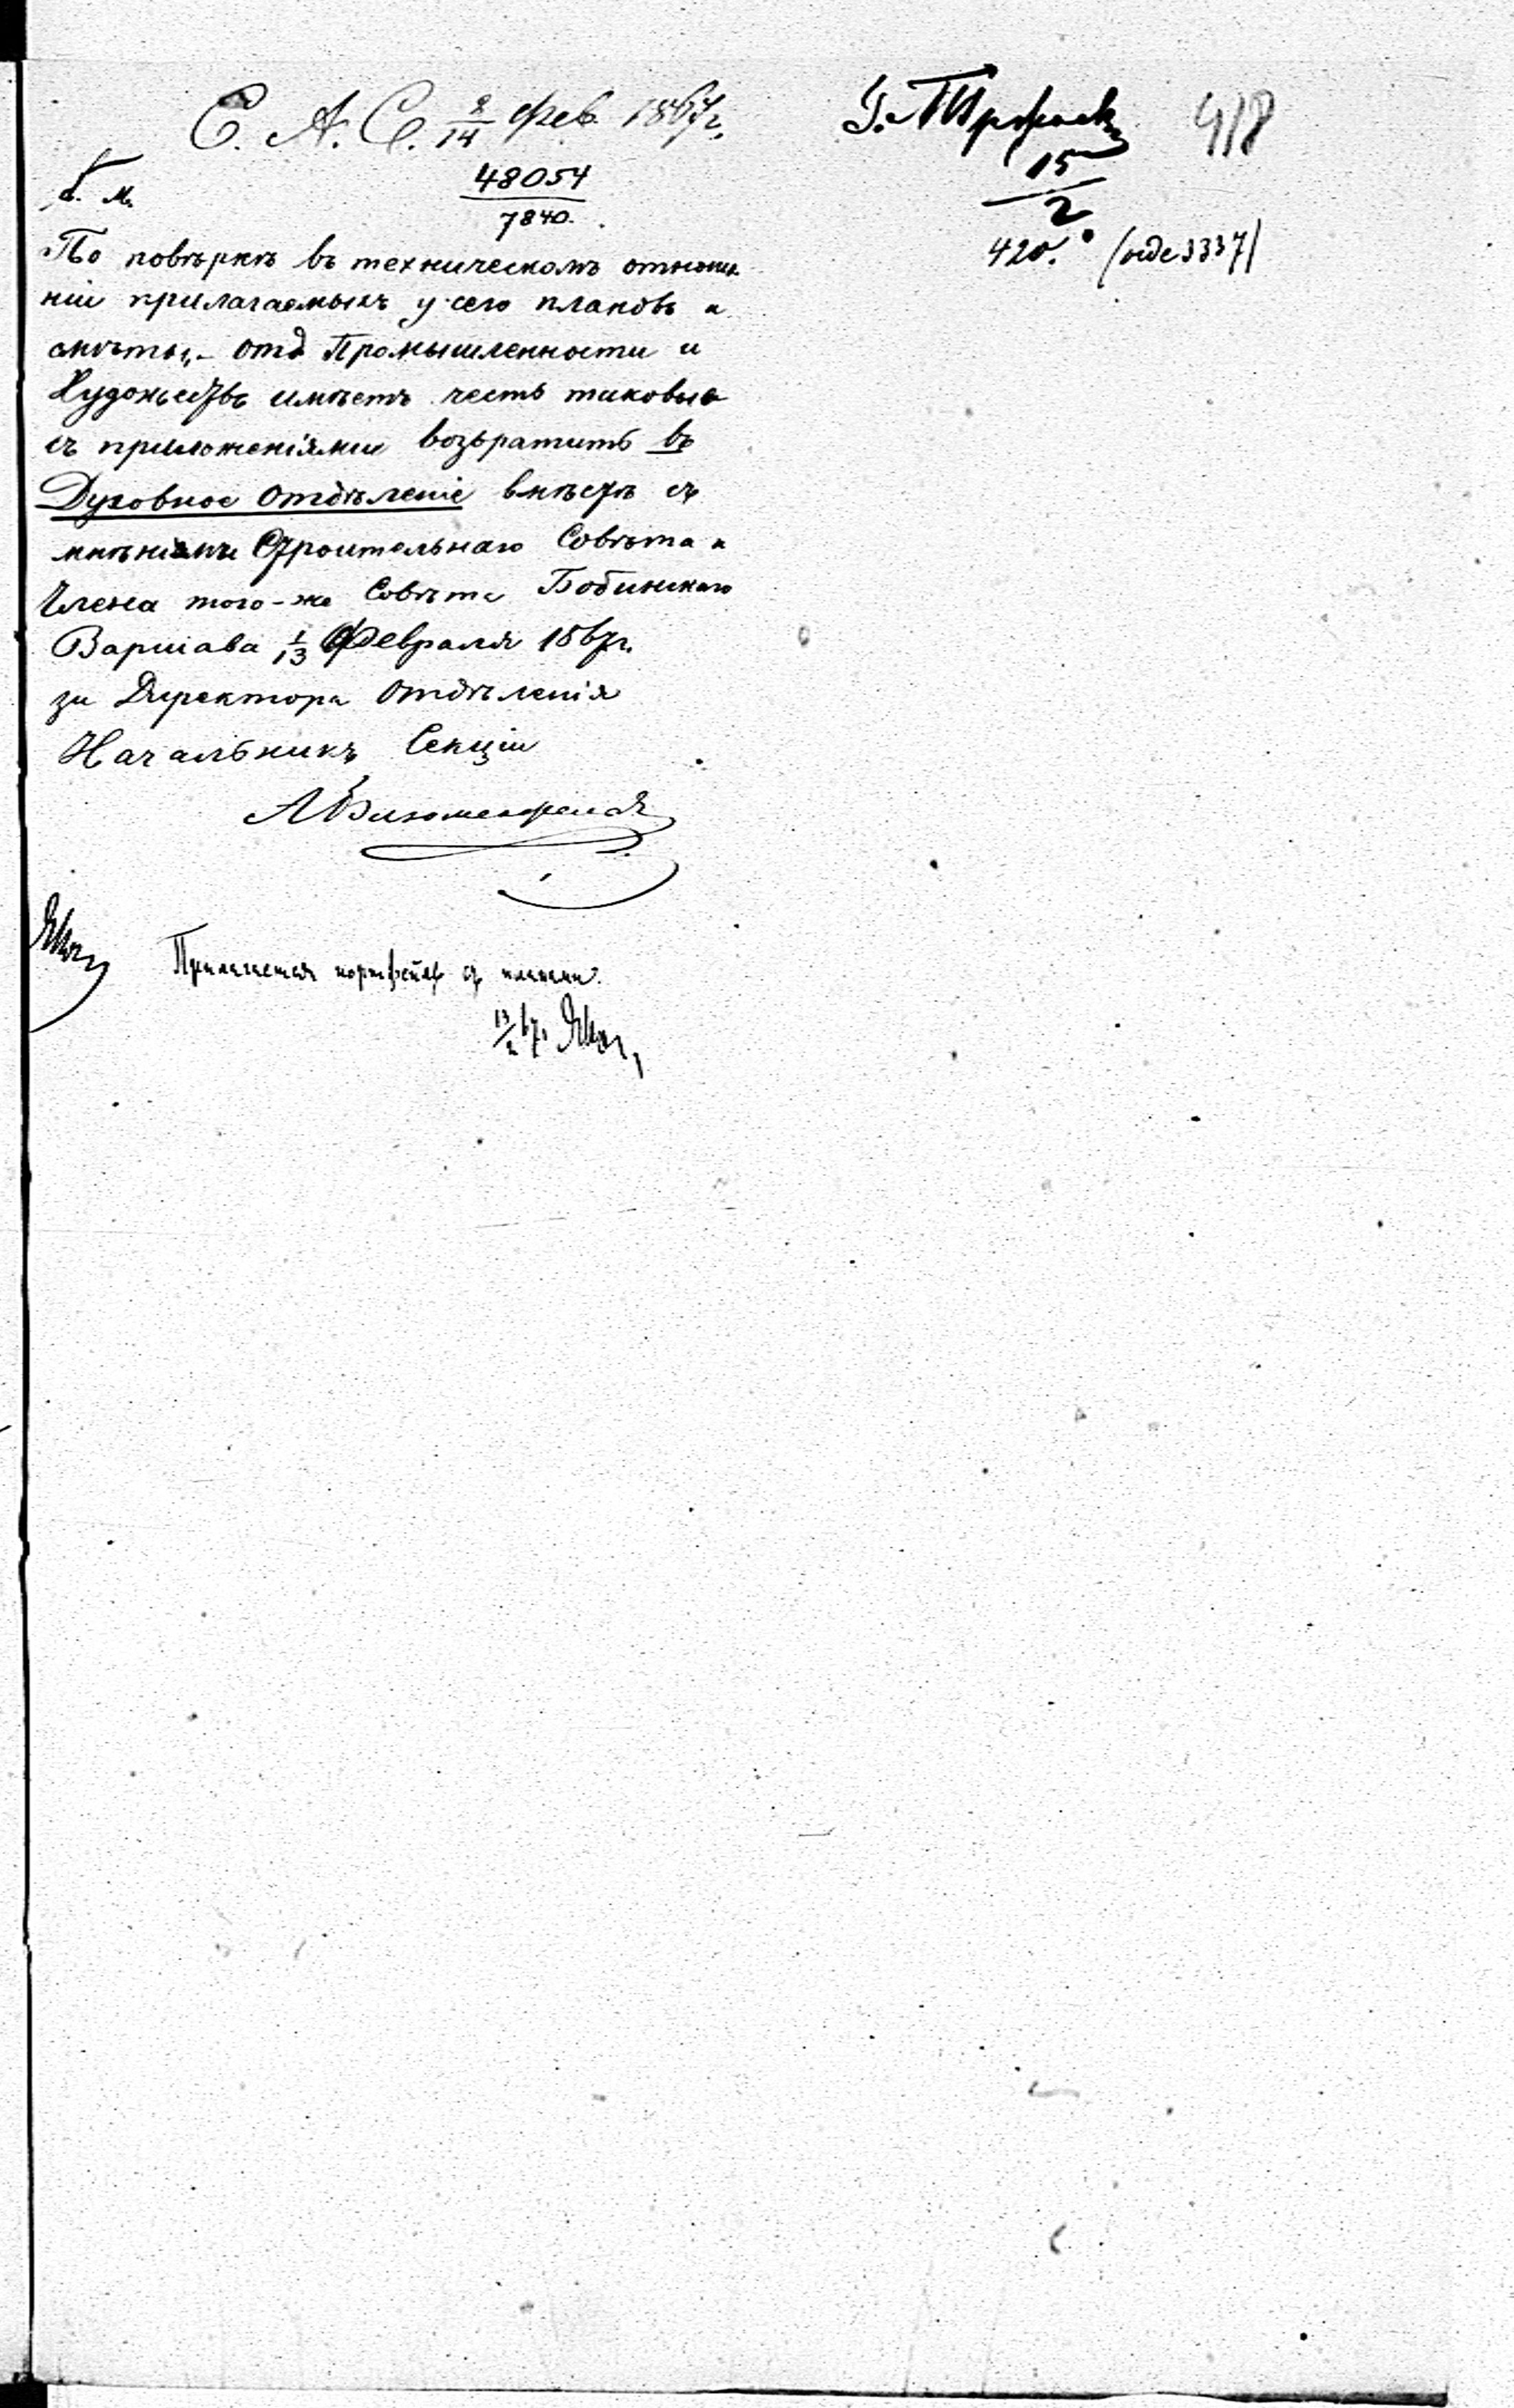 С. А. С. 2/14 Фев. 1867 г.
48054
7840.
По повѣркѣ въ техническомъ отноше-
ніи прилагаемыхъ у сего плановъ и
смѣты, - Отд Промышленности и
Художествъ имѣетъ честь таковые
съ приложеніями возвратить въ
Духовное Отдѣленіе вмѣстѣ съ
мнѣніями Строительнаго Совѣта и
Члена того-же Совѣта Бобинскаго
Варшава 1/13 Февраля 1867 г.
за Директора Отдѣленія
Начальникъ Секціи
Прилагается портфель съ планами.
13/2 67
418
15
2
420. (vide 3337)